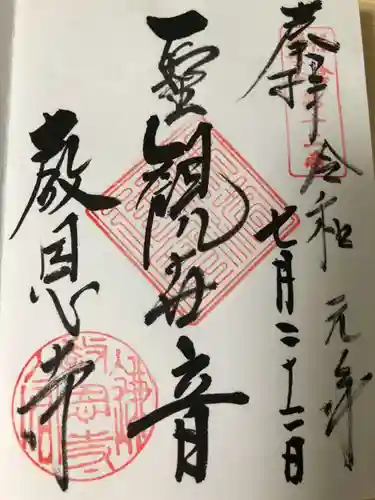 奉拝
令和元年
七月二十二日
聖観世音
恩寺